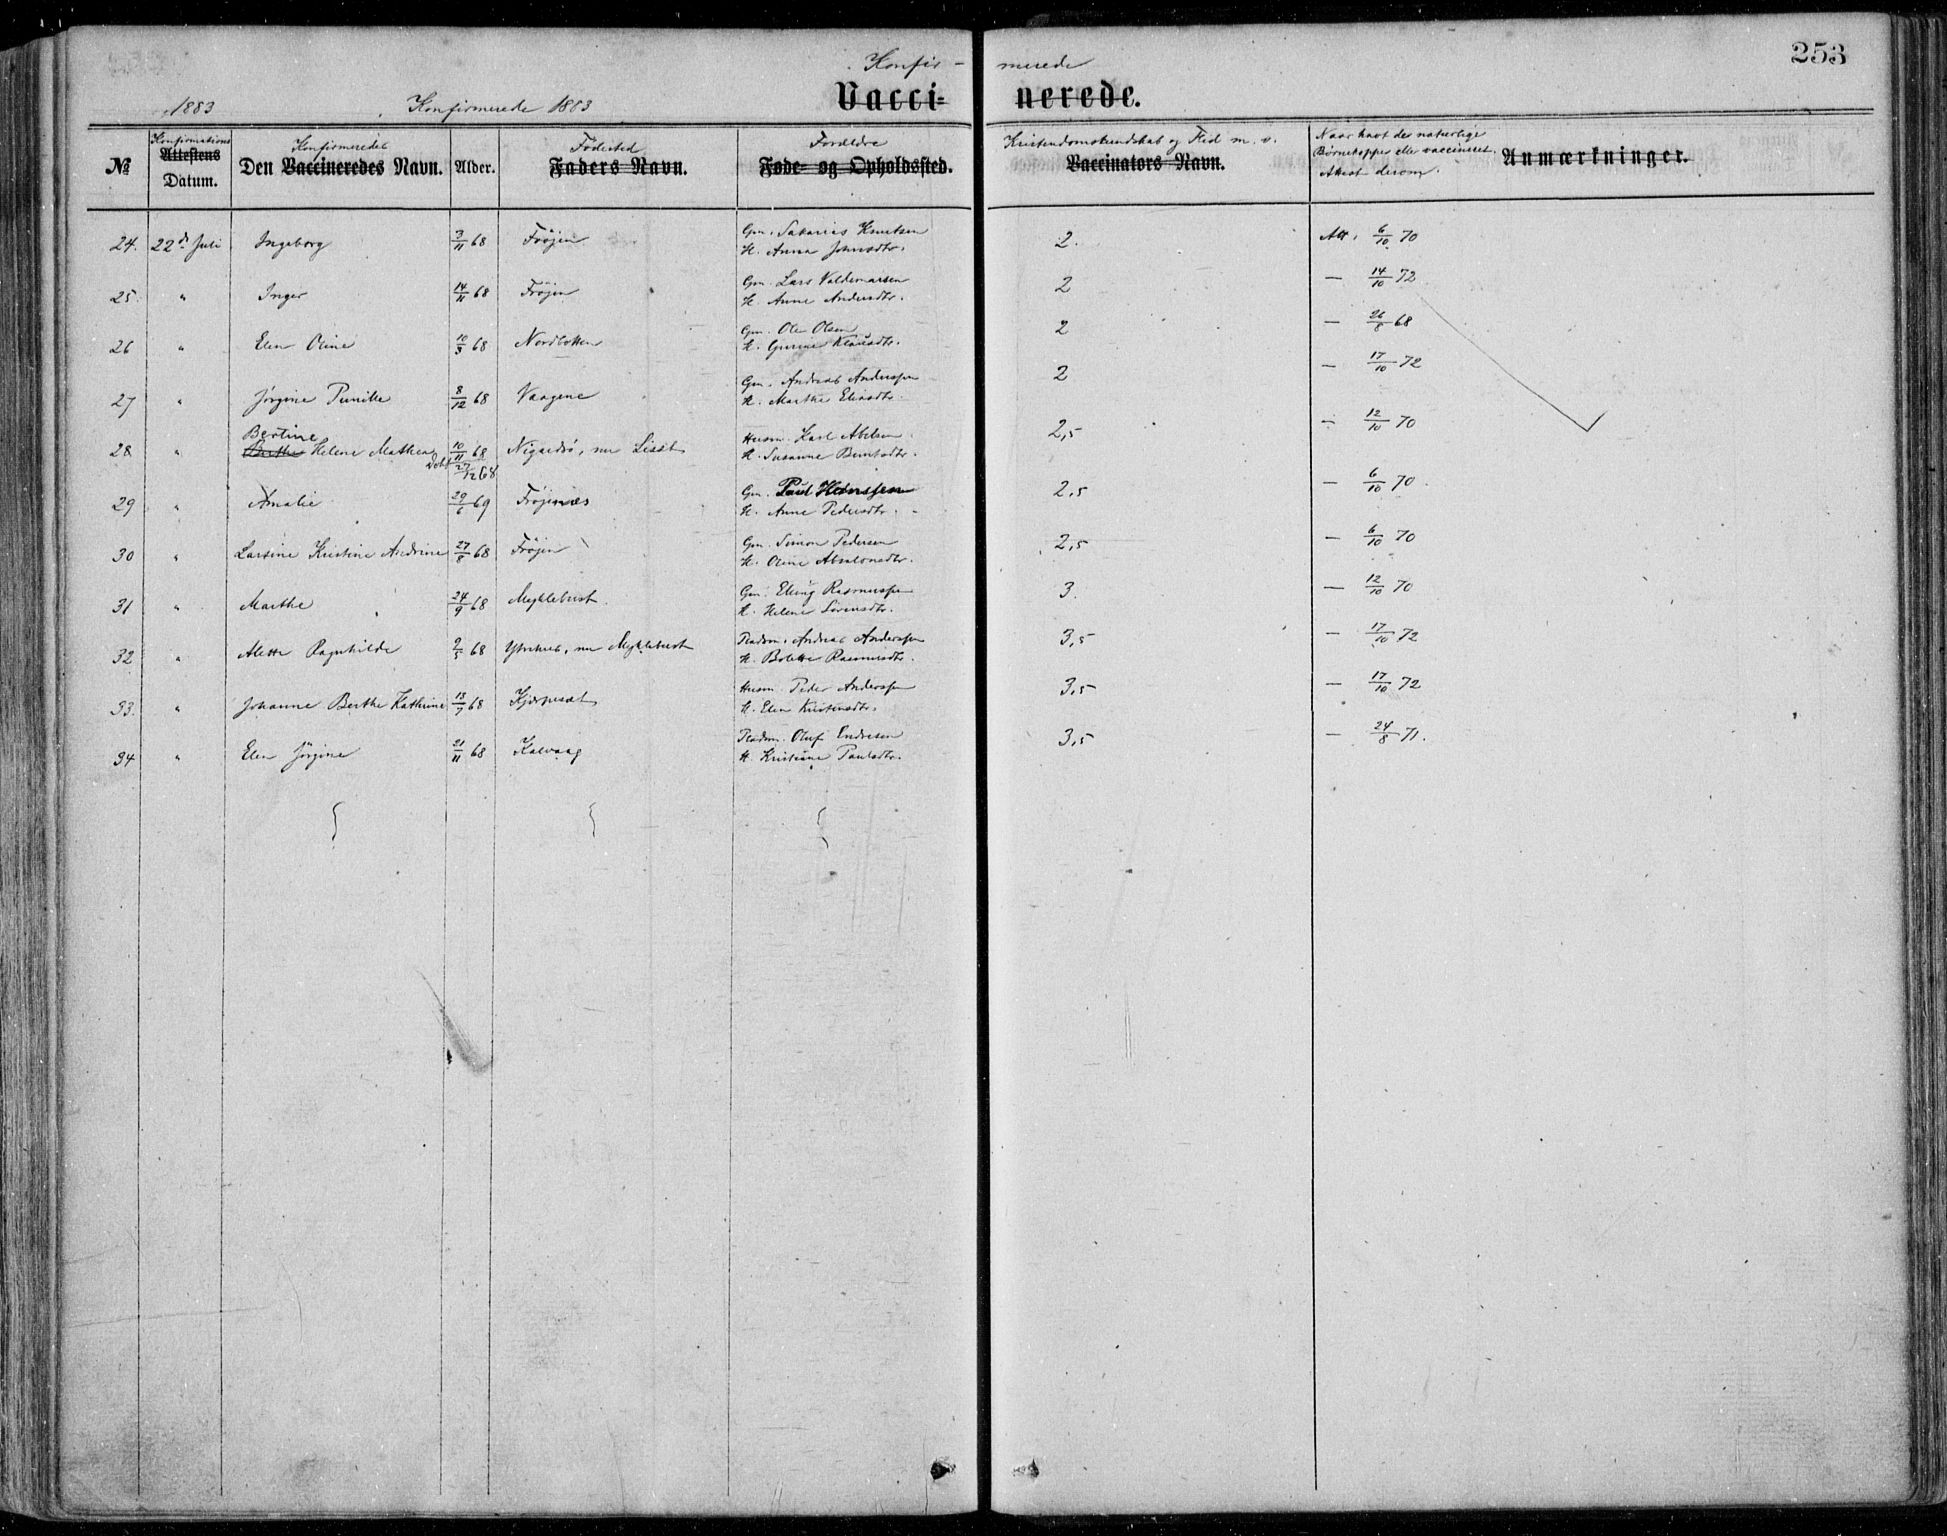 253
Konfir- merede
1883 Konfirmerede 1883 Vacci= nerede.
№ Konfirmations Attestens Datum. Den Konfirmeredes Vaccineredes Navn. Alder. Fødested Faders Navn. Forældre Føde- og Opholdssted. Kristendomskundskab og Flid m. v. Vaccinators Navn. Naar havt de naturlige Børnekopper eller vaccineret. Attest derom. Anmærkninger.
24. 22d Juli Ingeborg 3/11 68 Frøjen Gm. Sakarias Knutsen 2. Att. 6/10 70
H. Anna Johnsdtr.
25. " Inger 14/11 68 Frøjen Gm. Lars Valdemarsen 2 — 14/10 72
H. Anne Andersdtr.
26 " Elen Oline 10/3 68 Nordbotten Gm. Ole Olsen 2 — 26/8 68
H. Gurine Klausdtr.
27 " Jørgine Pernille 8/12 68 Vaagene Gm. Andreas Anderssen 2 — 17/10 72
H. Marthe Eliasdtr.
28 " Bertine Berthe Helene Mathea 10/11 68 Nigardsø, nu Liset Husm. Karl Abelsen 2,5 — 12/10 70
Døbt 27/12 68 H. Susanne Berntsdtr.
29 " Amalie 29/6 69 Frøjenæs Gm. Paul Hanssen 2,5 — 6/10 70
H. Anne Pedersdtr.
30 " Larsine Kristine Andrine 27/8 68 Frøjen Gm. Simon Pedersen 2,5 — 6/10 70
H. Oline Absalonsdtr.
31 " Marthe 24/9 68 Myklebust Gm. Elling Rasmussen 3. — 12/10 70
H. Helene Sørensdtr.
32 " Alette Ragnhilde 2/5 68 nu Myklebust Pladsm. Andreas Anderssen 3,5 — 17/10 72
H. Bolette Rasmusdtr.
33. " Johanne Berthe Kathrine 13/7 68 Kjærpesæt Husm. Peder Anderssen 3,5 — 17/10 72
H. Elen Kristensdtr.
34 " Elen Jørgine 21/11 68 Kalvaag Pladsm. Oluf Endresen 3,5 — 24/8 71.
H. Kristiane Paulsdtr.